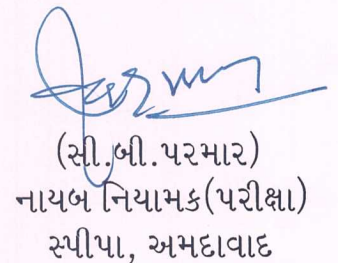 (સી.બી.પરમાર)
નાયબ નિયામક(પરીક્ષા)
સ્પીપા, અમદાવાદ